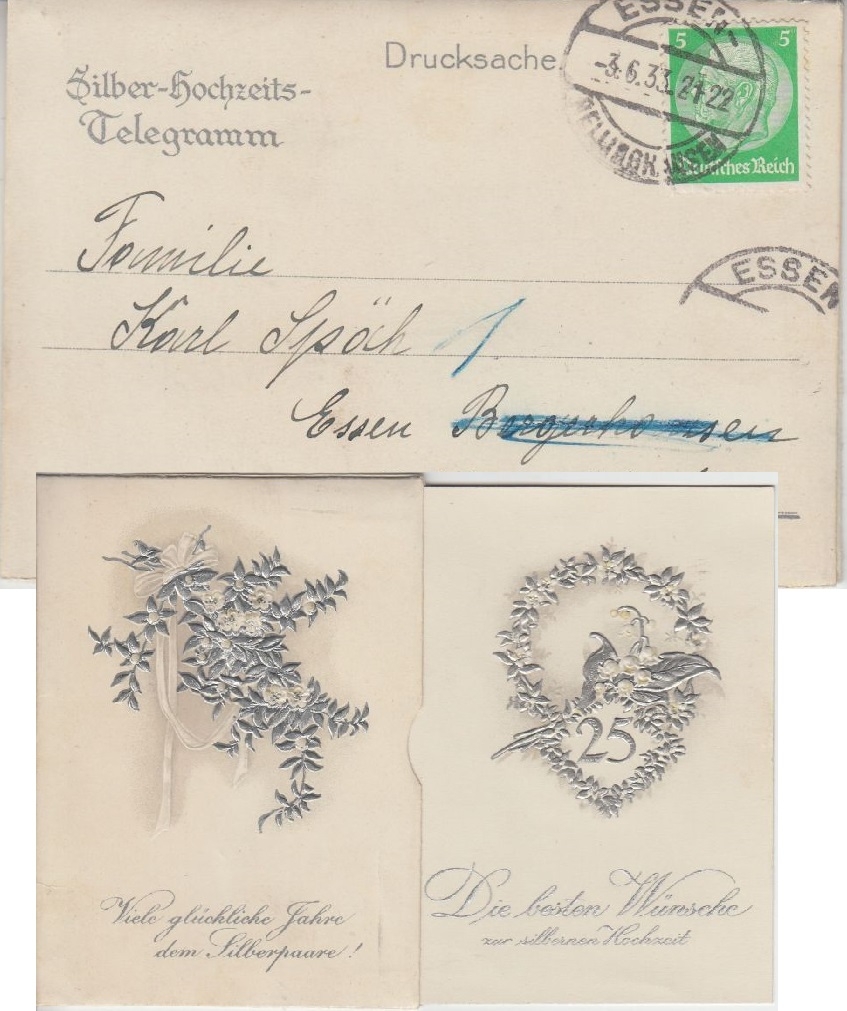 Drucksache
Silber-Hochzeits-
Telegramm
ESSEN
-3.6.33.21-22
5 5
Deutsches Reich
ESSEN
Familie
Karl Späh
Essen Bergerhausen
Viele glückliche Jahre
dem Silberpaare!
25
Die besten Wünsche
zur silbernen Hochzeit